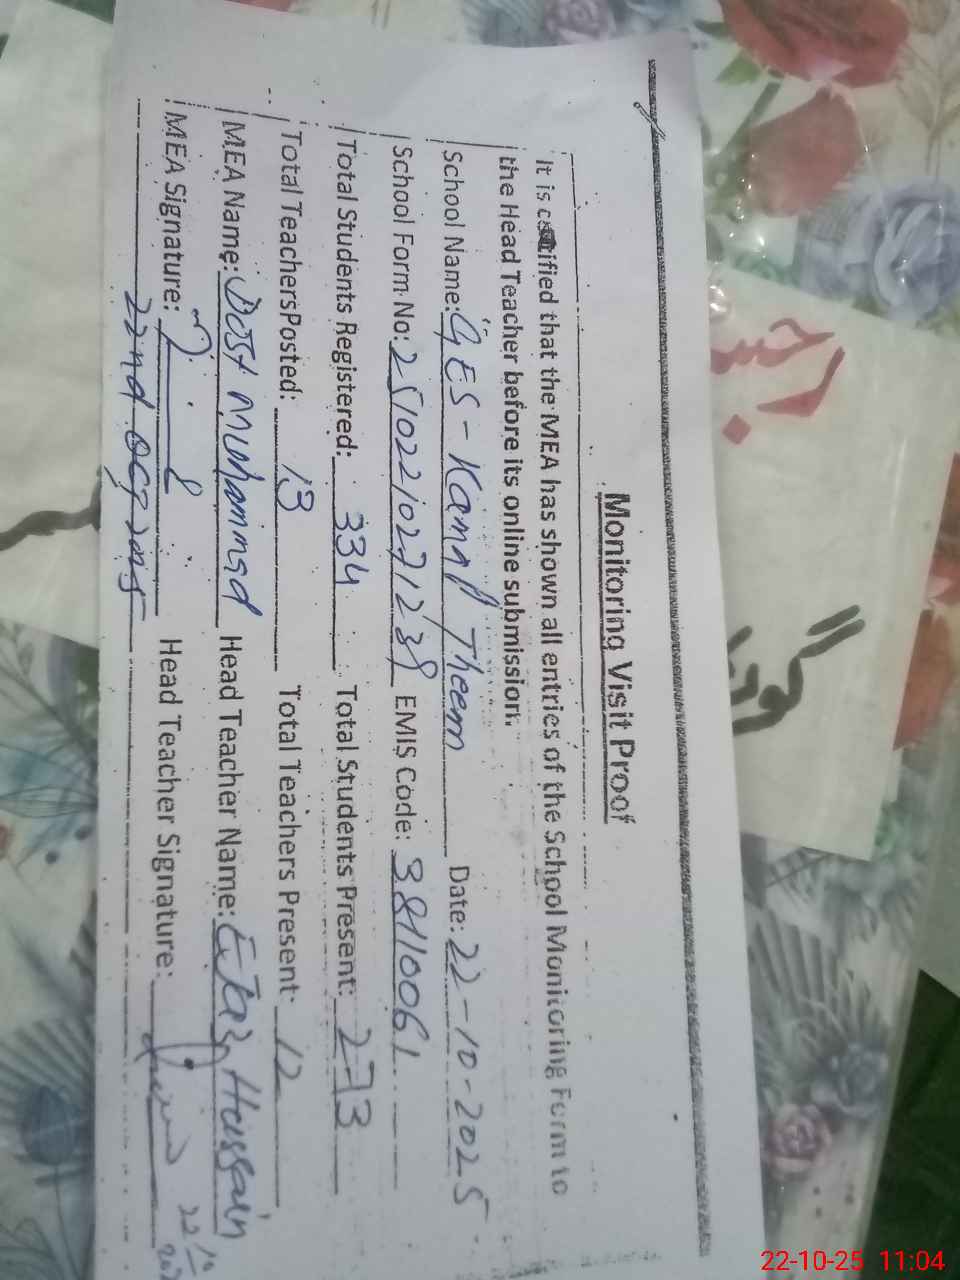 Monitoring Visit Proof
It is certified that the MEA has shown all entries of the School Monitoring Form to
the Head Teacher before its online submission.
School Name: GES - Kamal Theem Date: 22-10-2025
School Form No: 2510221027123 EMIS Code: 38110061
Total Students Registered: 334 Total Students Present: 273
Total Teachers Posted: 13 Total Teachers Present: 12
MEA Name: Dost Muhammad Head Teacher Name: Hussain
MEA Signature: Head Teacher Signature:
22nd Oct 2025
22/10
22-10-25 11:04